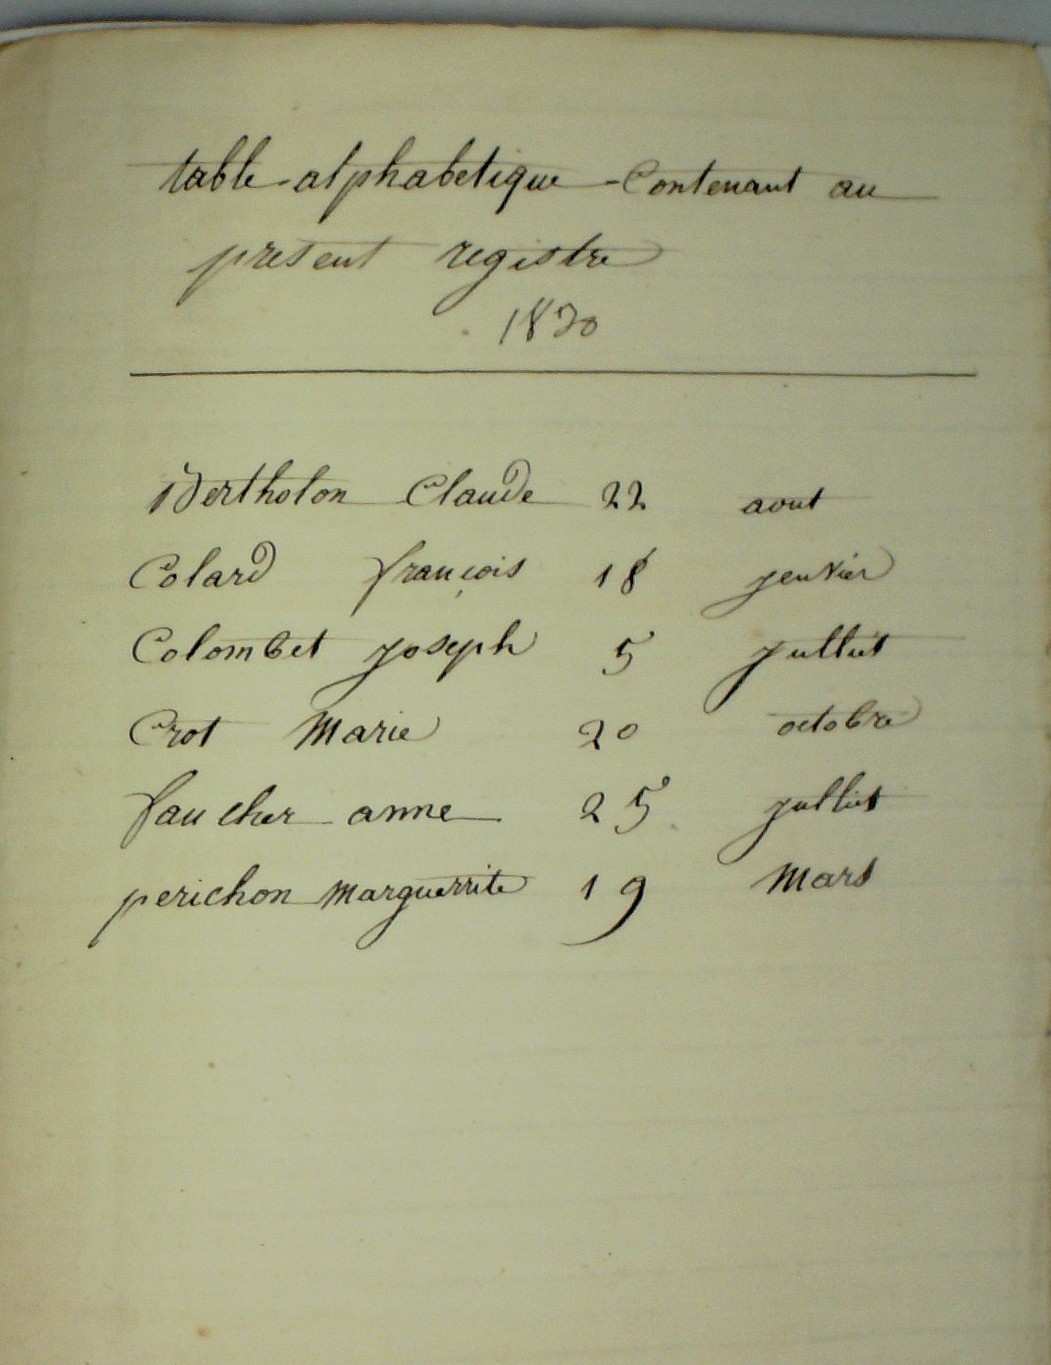 table alphabetique Contenant au
present registre
1830
Bertholon Claude 22 aout
Colard françois 18 jenvier
Colombet joseph 5 julliet
Crot Marie 20 octobre
faucher anne 25 julliet
perichon Marguerrite 19 Mars